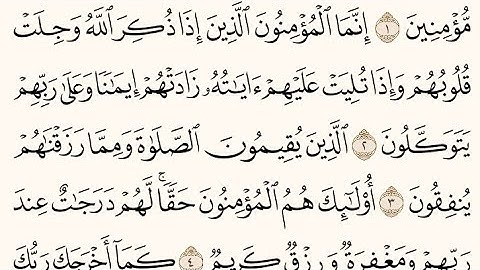 مُّؤْمِنِينَ ١ إِنَّمَا ٱلْمُؤْمِنُونَ ٱلَّذِينَ إِذَا ذُكِرَ ٱللَّهُ وَجِلَتْ
قُلُوبُهُمْ وَإِذَا تُلِيَتْ عَلَيْهِمْ ءَايَٰتُهُۥ زَادَتْهُمْ إِيمَٰنًا وَعَلَىٰ رَبِّهِمْ
يَتَوَكَّلُونَ ٢ ٱلَّذِينَ يُقِيمُونَ ٱلصَّلَوٰةَ وَمِمَّا رَزَقْنَٰهُمْ
يُنفِقُونَ ٣ أُو۟لَٰٓئِكَ هُمُ ٱلْمُؤْمِنُونَ حَقًّا ۚ لَّهُمْ دَرَجَٰتٌ عِندَ
رَبِّهِمْ وَمَغْفِرَةٌ وَرِزْقٌ كَرِيمٌ ٤ كَمَآ أَخْرَجَكَ رَبُّكَ